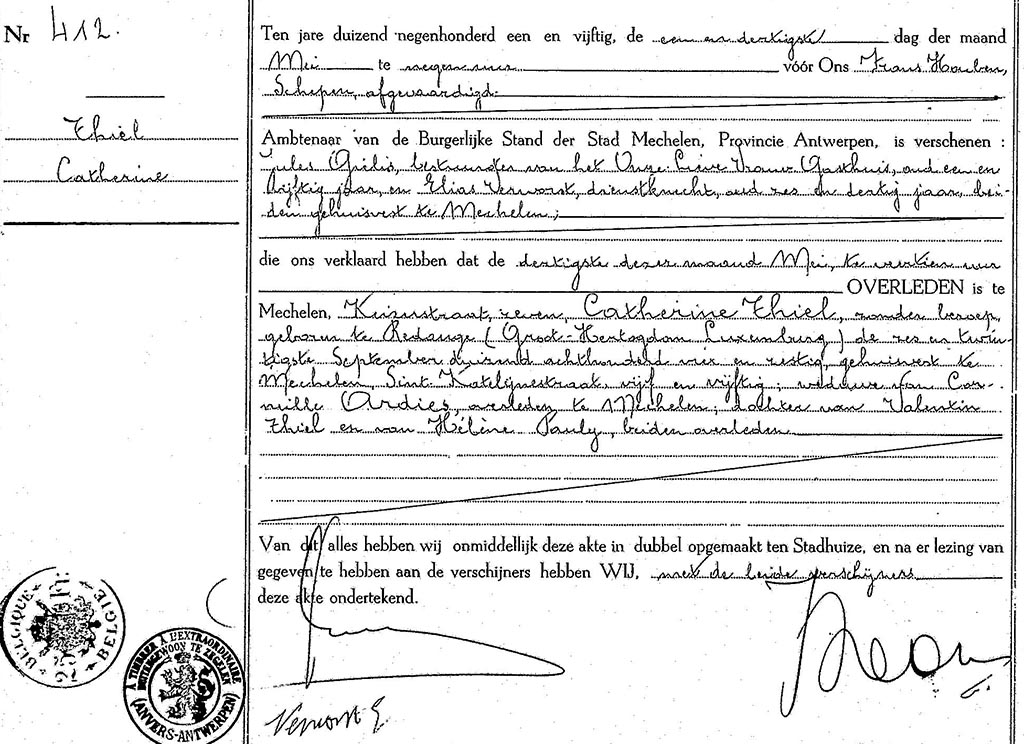 Nr 412.
Thiel
Catherine
Ten jare duizend negenhonderd een en vijftig, de een en dertigste dag der maand
Mei te negen uur vóór Ons Frans Houben,
Schepen, afgevaardigd
Ambtenaar van de Burgerlijke Stand der Stad Mechelen, Provincie Antwerpen, is verschenen :
Jules Gielis, bestuurder van het Onze Lieve Vrouw Gasthuis, oud een en
vijftig jaar, en Elias Vervorst, dienstknecht, oud zes en dertig jaar, bei-
den gehuisvest te Mechelen;
die ons verklaard hebben dat de dertigste dezer maand Mei, te veertien uur
OVERLEDEN is te
Mechelen, Keizerstraat, zeven, Catherine Thiel, zonder beroep,
geboren te Redange (Groot-Hertogdom Luxemburg) de zes en twin-
tigste September duizend achthonderd vier en zestig, gehuisvest te
Mechelen, Sint-Katelijnestraat, vijf en vijftig; weduwe van Cor-
neille Ardies, overleden te Mechelen; dochter van Valentin
Thiel en van Hélène Pauly, beiden overleden
Van dit alles hebben wij onmiddellijk deze akte in dubbel opgemaakt ten Stadhuize, en na er lezing van
gegeven te hebben aan de verschijners hebben WIJ, met de beide verschijners
deze akte ondertekend.
BELGIQUE BELGIE
A TIMBRER À L'EXTRAORDINAIRE
BUITENGEWOON TE ZEGELEN
(ANVERS-ANTWERPEN)
Vervorst E